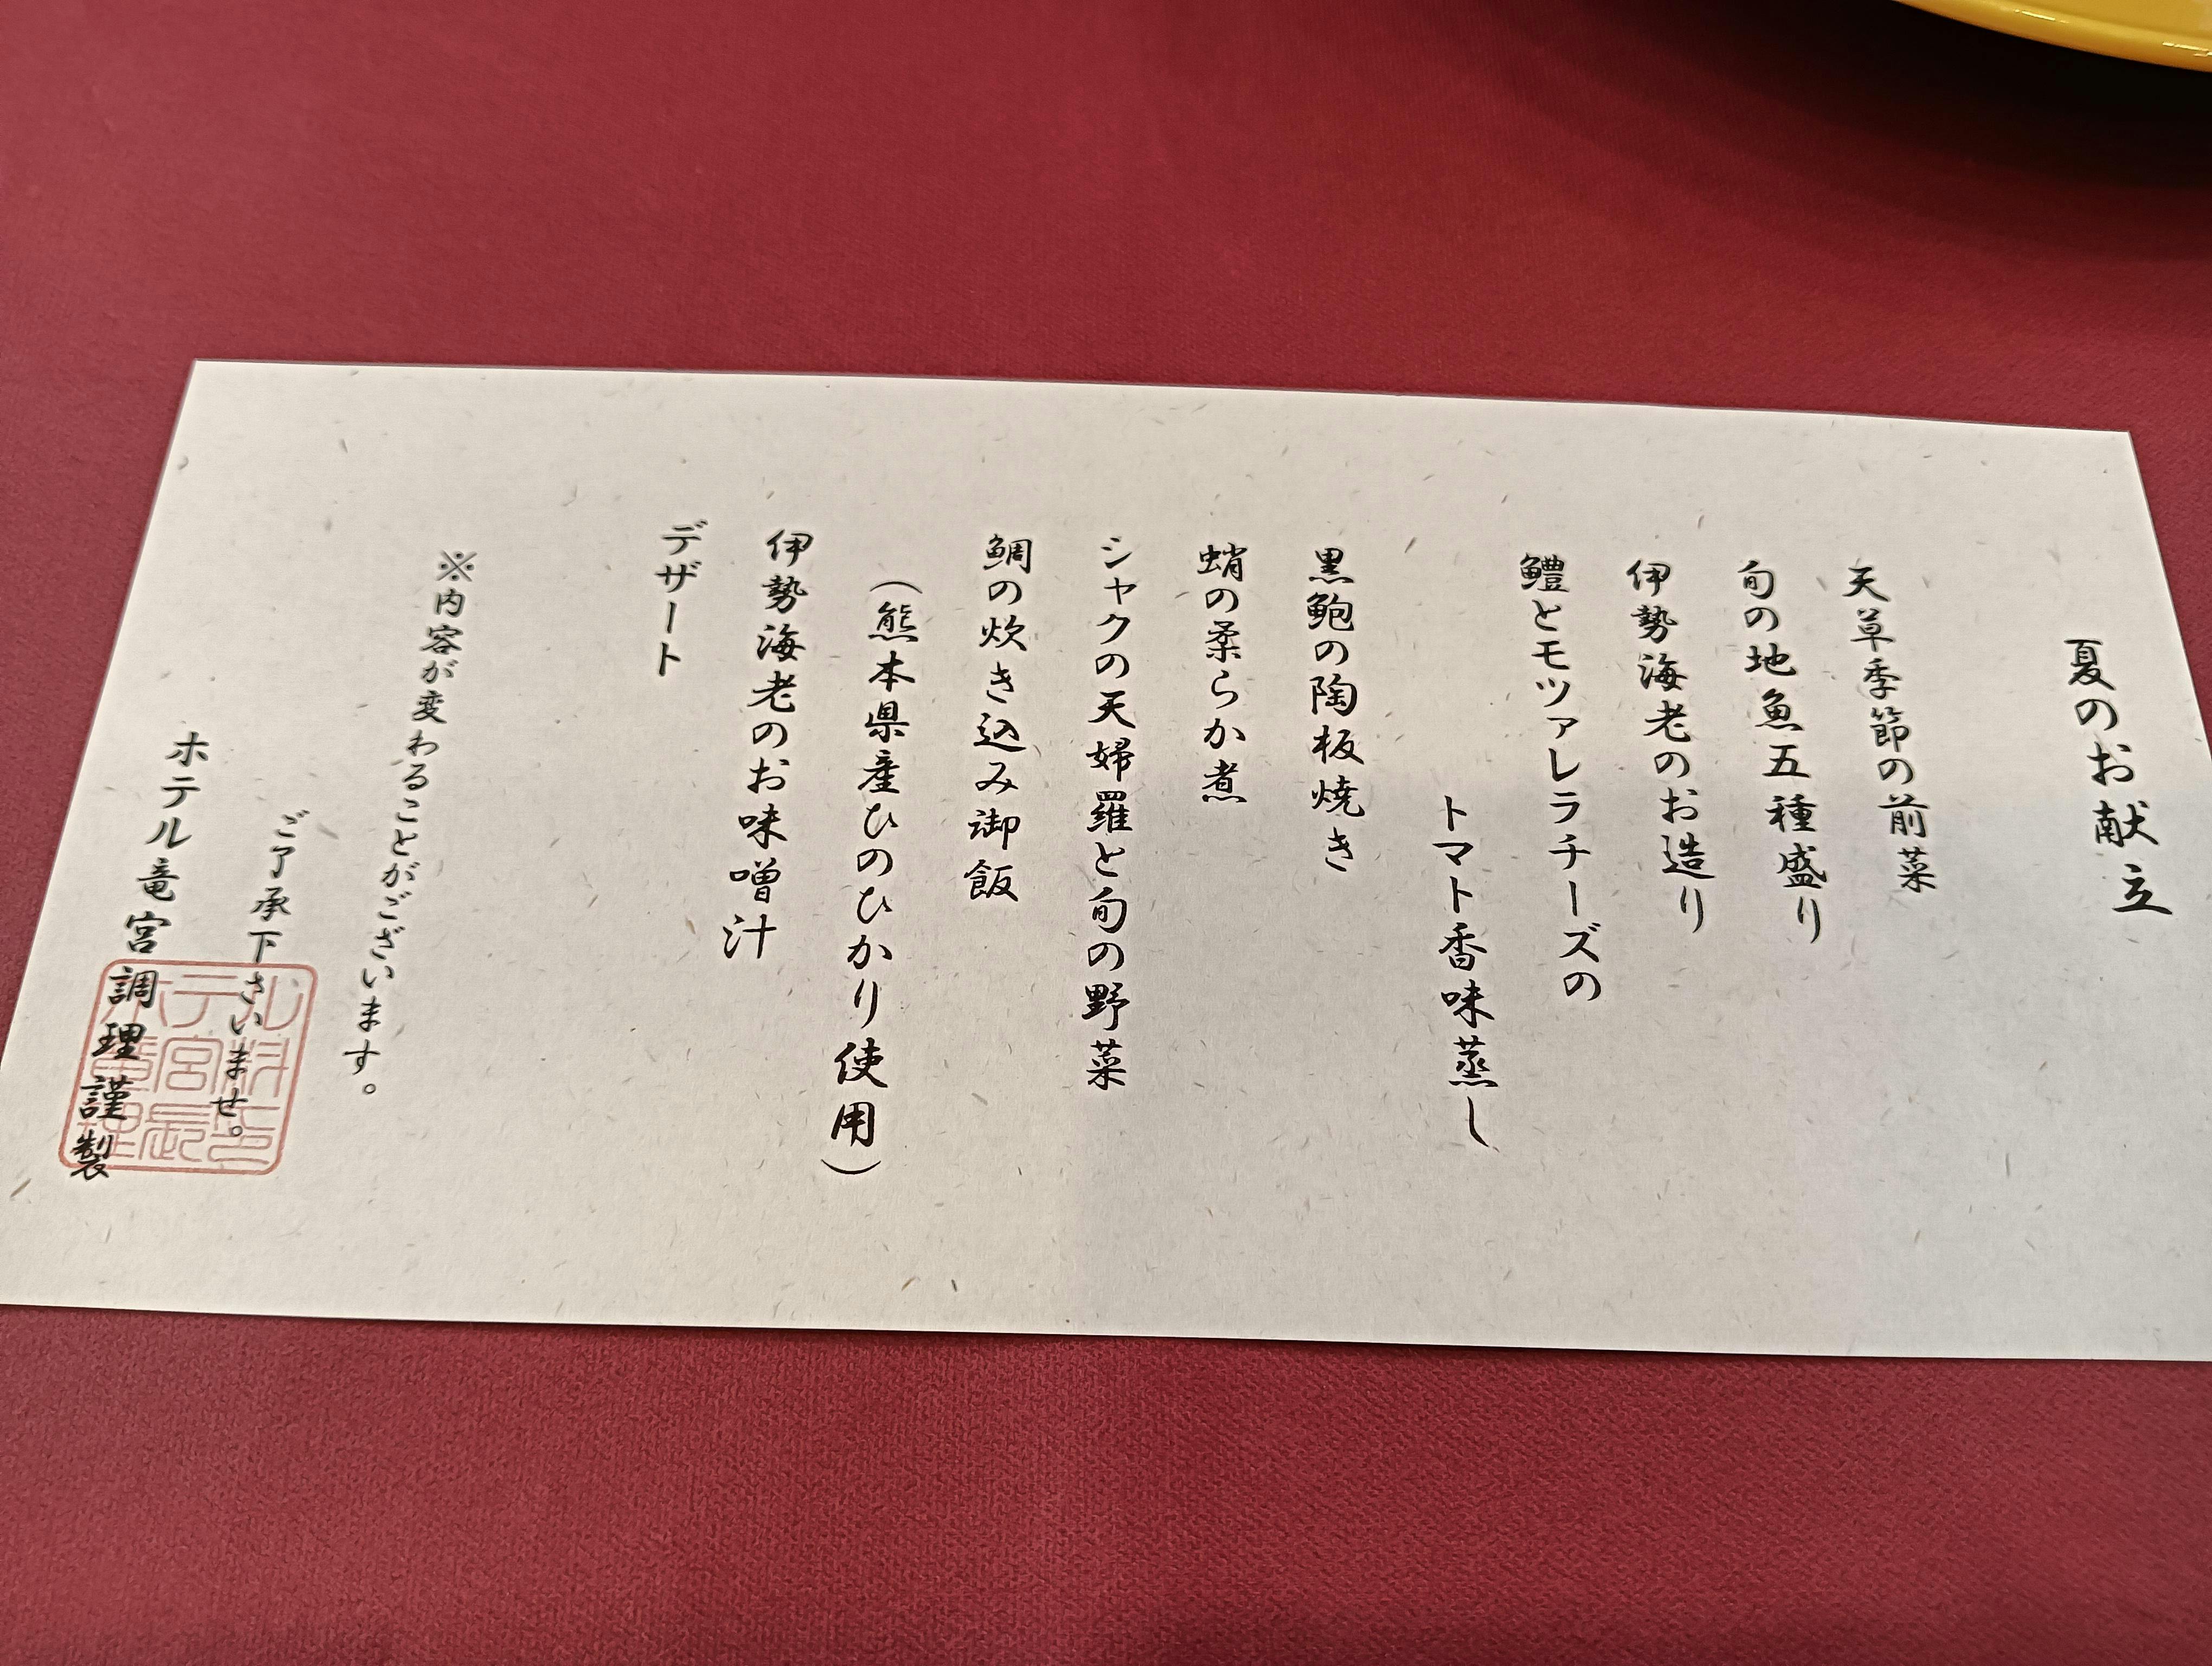 夏のお献立
天草季節の前菜
旬の地魚五種盛り
伊勢海老のお造り
鱧とモツァレラチーズの
トマト香味蒸し
黒鮑の陶板焼き
蛸の柔らか煮
シャクの天婦羅と旬の野菜
鯛の炊き込み御飯
（熊本県産ひのひかり使用）
伊勢海老のお味噌汁
デザート
※内容が変わることがございます。
ご了承下さいませ。
ホテル竜宮調理謹製